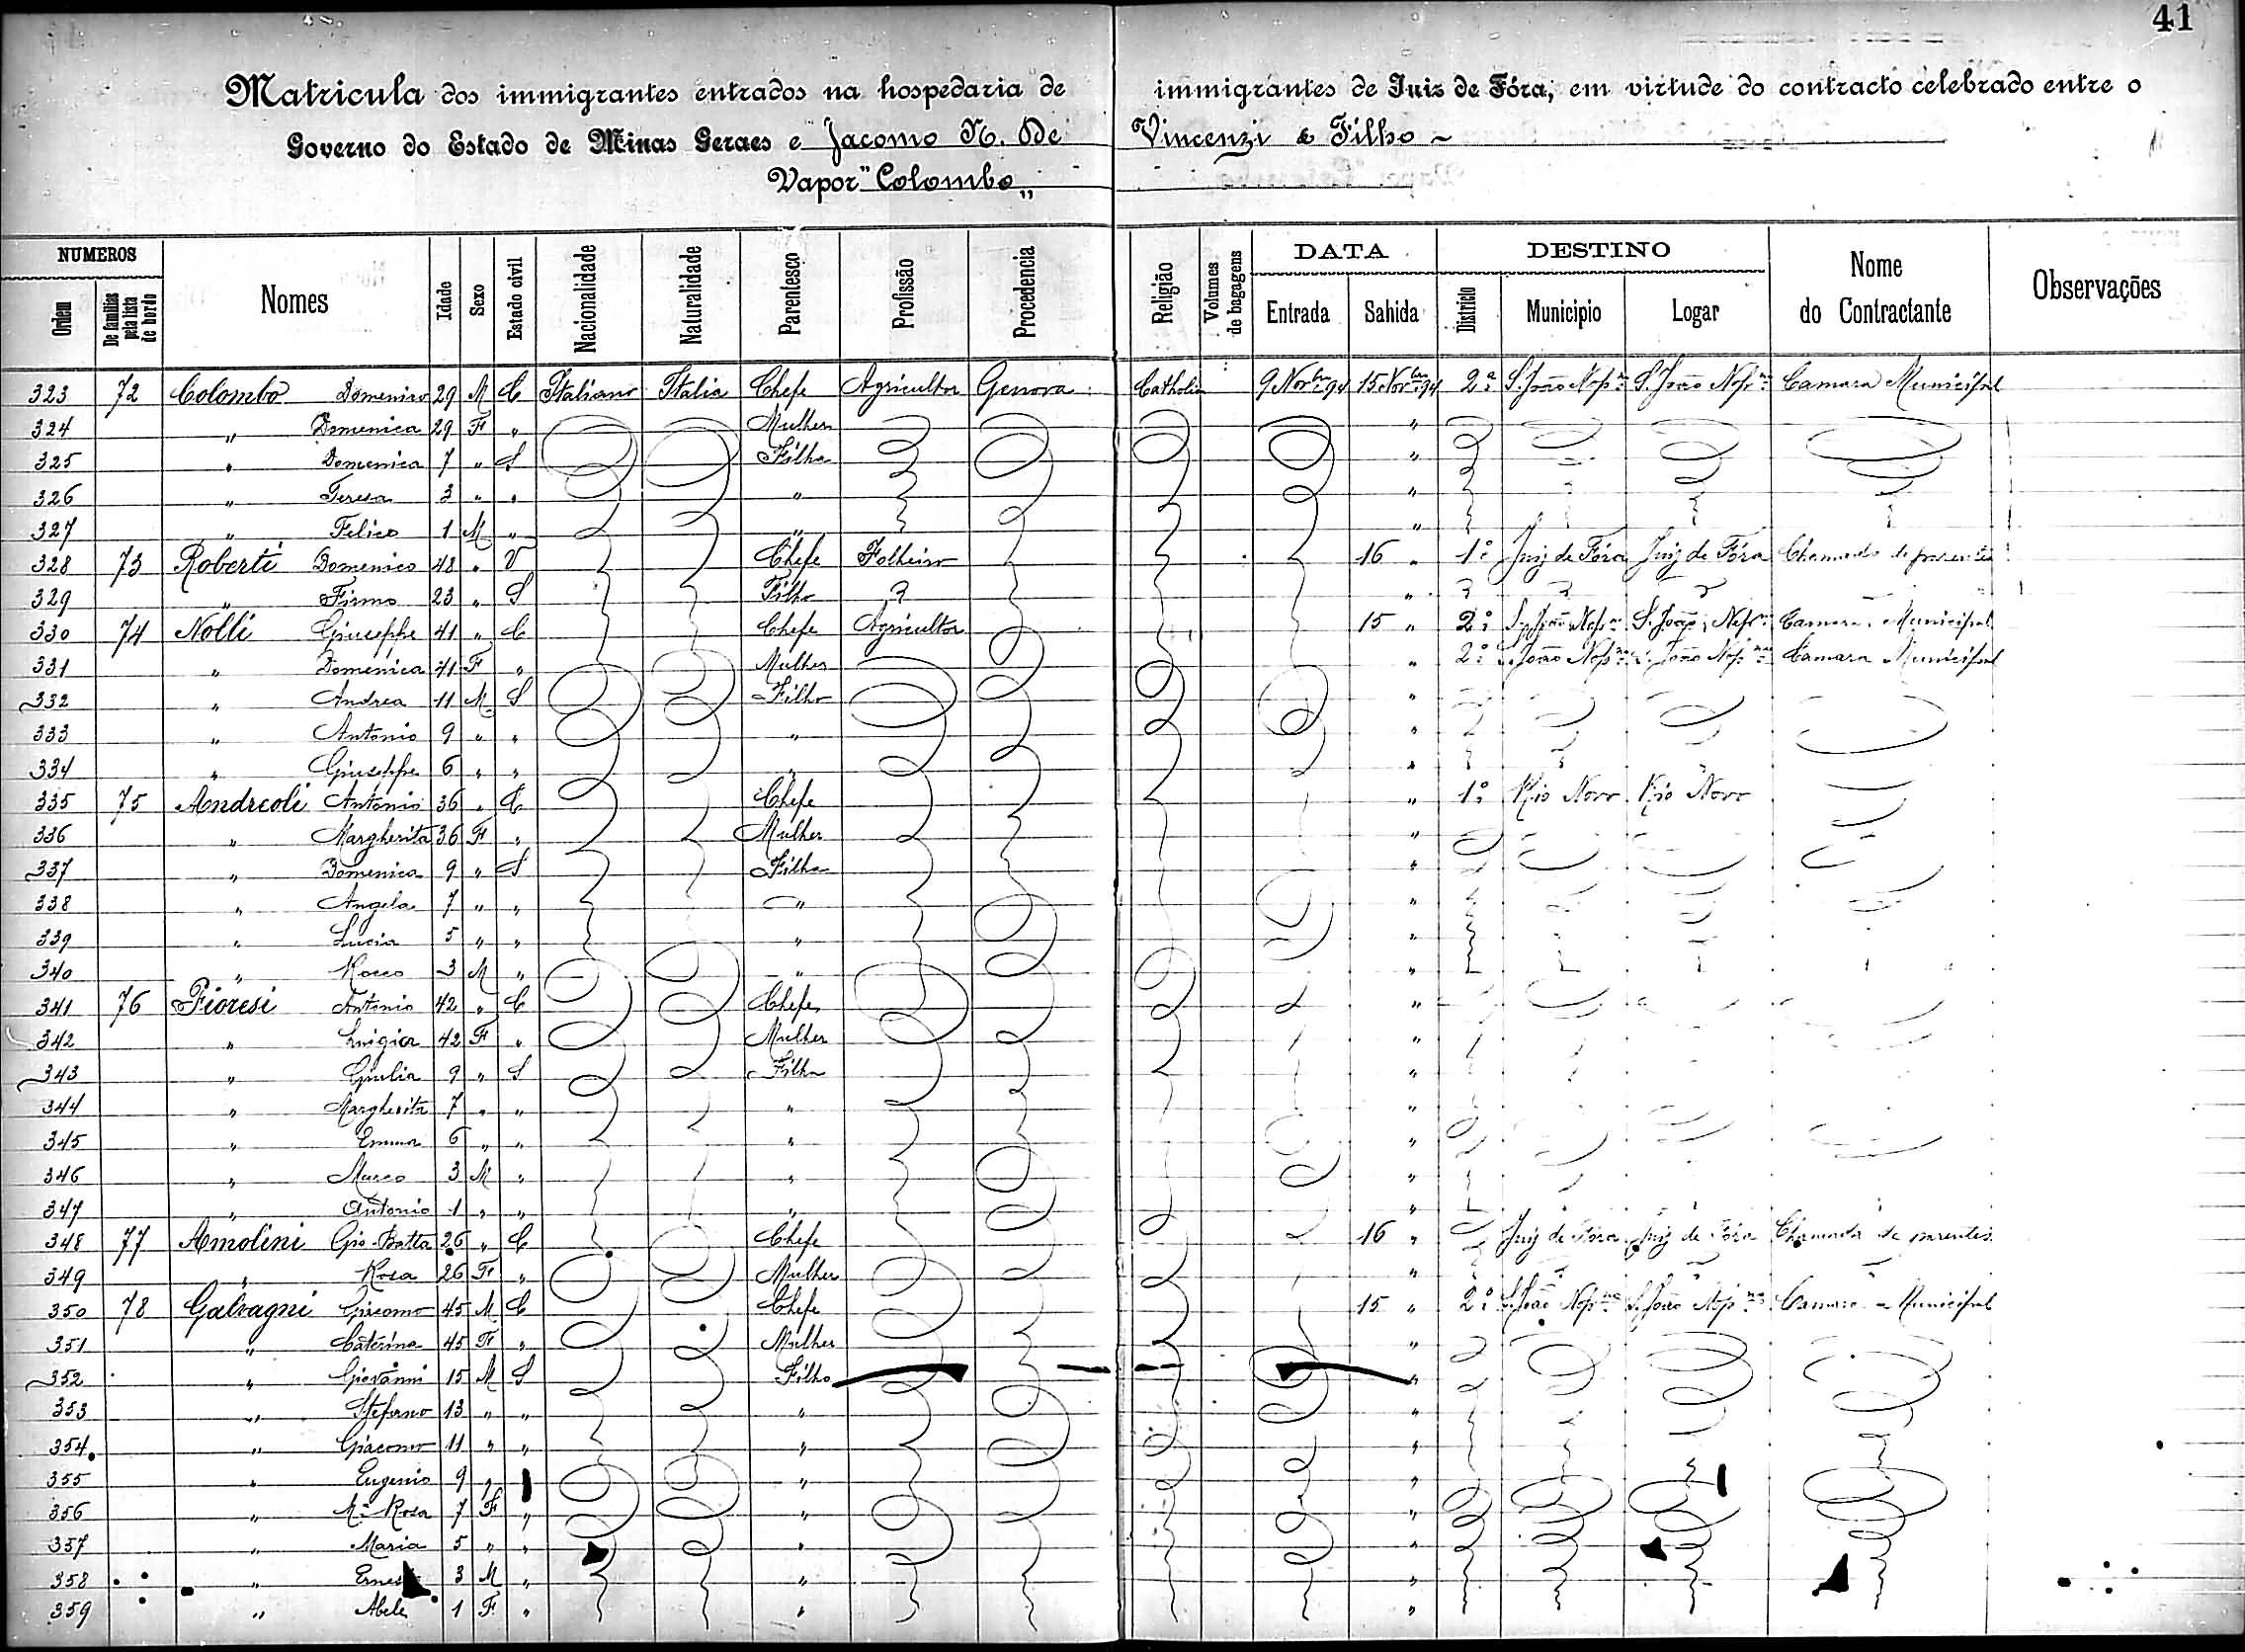 41
Matricula dos immigrantes entrados na hospedaria de immigrantes de Juiz de Fóra, em virtude do contracto celebrado entre o
Governo do Estado de Minas Geraes e Jacomo N. De Vincenzi & Filho ~
Vapor "Colombo"
NUMEROS DATA DESTINO
Ordem De familias pela lista de bordo Nomes Idade Sexo Estado civil Nacionalidade Naturalidade Parentesco Profissão Procedencia Religião Volumes de bagagens Entrada Sahida Districto Municipio Logar Nome do Contractante Observações
323 72 Colombo Domenico 29 M C Italiano Italia Chefe Agricultor Genova Catholica 9 Novbro 94 15 Novbro 94 2ª S. João Nepno S. João Nepno Camara Municipal
324 " Domenica 29 F " Mulher "
325 " Domenica 7 " S Filha "
326 " Teresa 3 " " " "
327 " Felice 1 M " " "
328 73 Roberti Domenico 48 " V Chefe Folheiro 16 " 1º Juiz de Fóra Juiz de Fóra Chamado de parentes
329 " Firmo 23 " S Filho "
330 74 Nolli Giuseppe 41 " C Chefe Agricultor 15 " 2º S. João Nepno S. João Nepno Camara Municipal
331 " Domenica 41 F " Mulher " 2º S. João Nepno S. João Nepno Camara Municipal
332 " Andrea 11 M S Filho "
333 " Antonio 9 " " " "
334 " Giuseppe 6 " " " "
335 75 Andreoli Antonio 36 " C Chefe " 1º Rio Novo Rio Novo
336 " Margherita 36 F " Mulher "
337 " Domenica 9 " S Filha "
338 " Angela 7 " " " "
339 " Lucia 5 " " " "
340 " Rocco 3 M " " "
341 76 Fioresi Antonio 42 " C Chefe "
342 " Luigia 42 F " Mulher "
343 " Giulia 9 " S Filha "
344 " Margherita 7 " " " "
345 " Emma 6 " " " "
346 " Marco 3 M " " "
347 " Antonio 1 " " " "
348 77 Amolini Gio-Batta 26 " C Chefe 16 " Juiz de Fóra Juiz de Fóra Chamada de parentes
349 " Rosa 26 F " Mulher "
350 78 Galvagni Giacomo 45 M C Chefe 15 " 2º S. João Nepno S. João Nepno Camara Municipal
351 " Caterina 45 F " Mulher "
352 " Giovanni 15 M S Filho "
353 " Stefano 13 " " " "
354 " Giacomo 11 " " " "
355 " Eugenio 9 " " "
356 " Mª Rosa 7 F " " "
357 " Maria 5 " " " "
358 " 3 M " " "
359 " Abele 1 F " " "